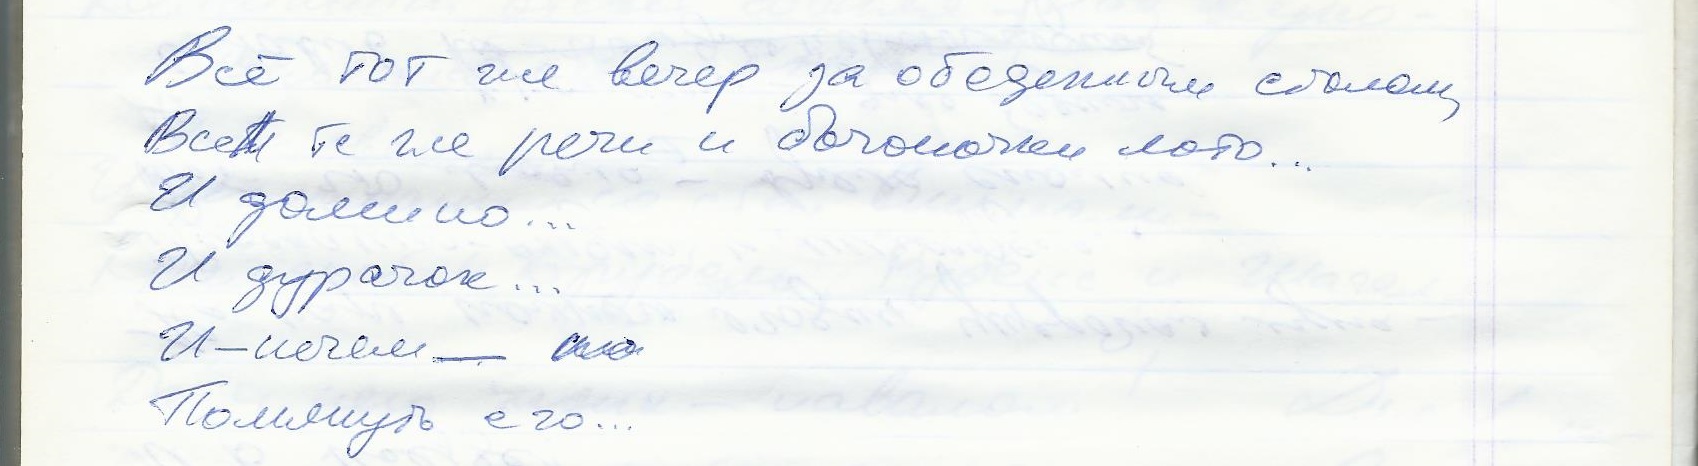 Всё тот же вечер за обеденным столом,
Все те же речи и бочоночки лото...
И домино...
И дурачок...
И – нечем —
Помянуть его...